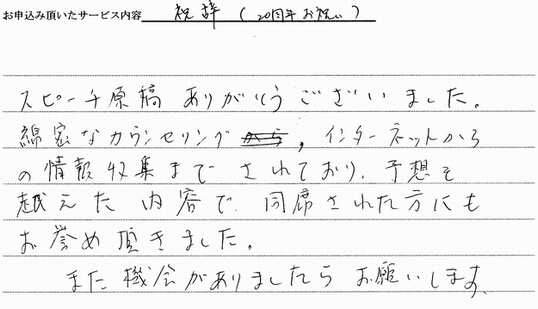 お申込み頂いたサービス内容 祝辞（20周年お祝い）
スピーチ原稿ありがとうございました。
綿密なカウンセリング、インターネットから
の情報収集までされており、予想を
越えた内容で同席された方にも
お誉め頂きました。
また機会がありましたらお願いします。